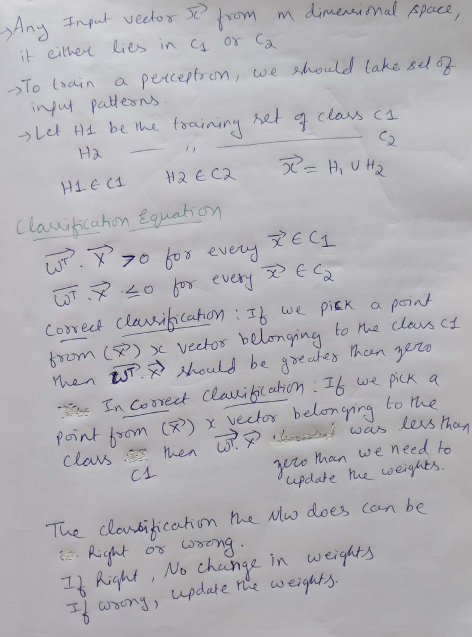 →Any Input vector x⃗ from m dimensional space,
it either lies in C1 or C2
→To train a perceptron, we should take set of
input patterns.
→Let H1 be the training set of class C1
H2 — " — C2
H1 ∈ C1 H2 ∈ C2 x⃗ = H1 ∪ H2
Classification Equation
w⃗ᵀ. x⃗ >0 for every x⃗ ∈ C1
w⃗ᵀ. x⃗ ≤0 for every x⃗ ∈ C2
Correct classification: If we pick a point
from (x⃗) x vector belonging to the class C1
then w⃗ᵀ. x⃗ should be greater than zero
In Correct Classification: If we pick a
point from (x⃗) x vector belonging to the
class C1 then w⃗ᵀ. x⃗ was less than
zero than we need to
update the weights.
The classification the NW does can be
Right or wrong.
If Right, No change in weights
If wrong, update the weights.